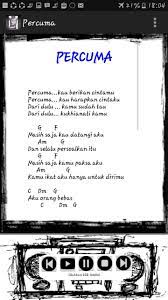 18:04
Percuma
PERCUMA
Percuma...kau berikan cintamu
Percuma... kau harapkan cintaku
Dari dulu... kamu sudah tau
Dari dulu... kukhianati kamu
G F
Masih saja kau datangi aku
Am G
Dan selalu persoalkan itu
G F
Masih saja kamu paksa aku
Am G
Kamu ikat aku hanya untuk dirimu
C Dm G
Aku orang bebas
C Dm G